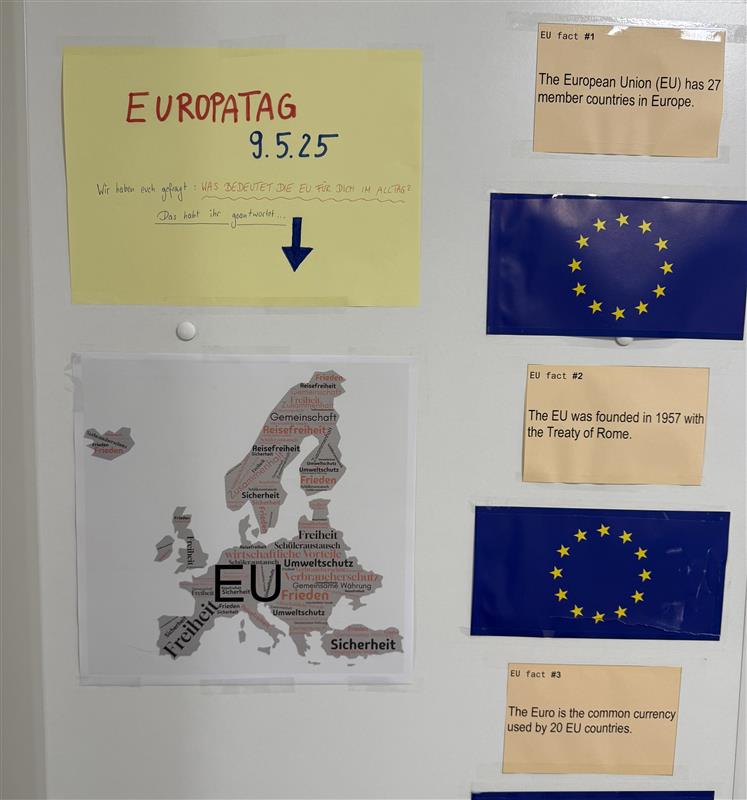 EUROPATAG
9.5.25
Wir haben euch gefragt: WAS BEDEUTET DIE EU FÜR DICH IM ALLTAG?
Das habt ihr geantwortet...
Frieden
Reisefreiheit
Gemeinschaft
Freiheit
Zusammenhalt
Gemeinschaft
Reisefreiheit
Reisefreiheit
Sicherheit
Zusammenhalt
Umweltschutz
Umweltschutz
Frieden
Sicherheit
Frieden
Frieden
Frieden
Frieden
Freiheit
Freiheit
Schüleraustausch
Reisefreiheit
wirtschaftliche Vorteile
Schüleraustausch
Umweltschutz
Verbraucherschutz
EU
Gemeinsame Währung
Freiheit
Sicherheit
Frieden
Frieden
Umweltschutz
Freiheit
Sicherheit
Sicherheit
EU fact #1
The European Union (EU) has 27
member countries in Europe.
EU fact #2
The EU was founded in 1957 with
the Treaty of Rome.
EU fact #3
The Euro is the common currency
used by 20 EU countries.